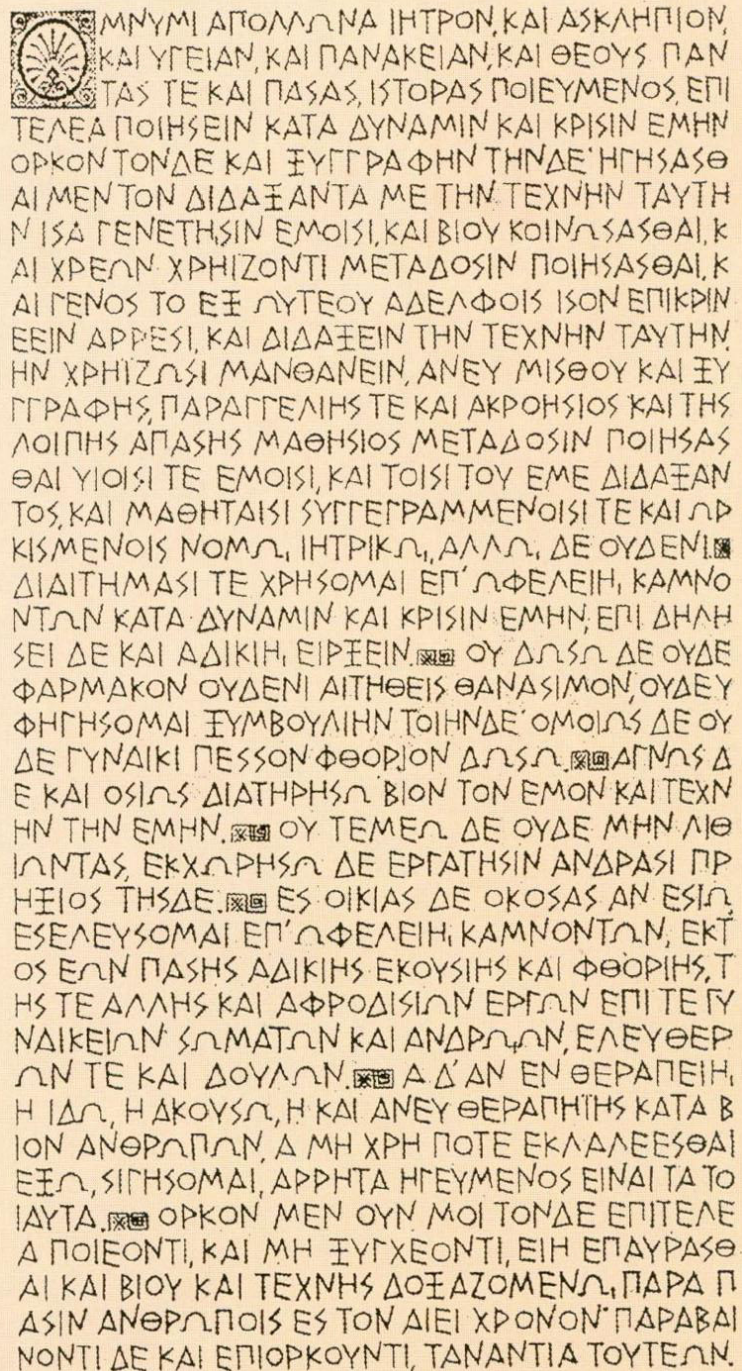 ΟΜΝΥΜΙ ΑΠΟΛΛΩΝΑ ΙΗΤΡΟΝ, ΚΑΙ ΑΣΚΛΗΠΙΟΝ,
ΚΑΙ ΥΓΕΙΑΝ, ΚΑΙ ΠΑΝΑΚΕΙΑΝ, ΚΑΙ ΘΕΟΥΣ ΠΑΝ
ΤΑΣ ΤΕ ΚΑΙ ΠΑΣΑΣ, ΙΣΤΟΡΑΣ ΠΟΙΕΥΜΕΝΟΣ, ΕΠΙ
ΤΕΛΕΑ ΠΟΙΗΣΕΙΝ ΚΑΤΑ ΔΥΝΑΜΙΝ ΚΑΙ ΚΡΙΣΙΝ ΕΜΗΝ
ΟΡΚΟΝ ΤΟΝΔΕ ΚΑΙ ΞΥΓΓΡΑΦΗΝ ΤΗΝΔΕ· ΗΓΗΣΑΣΘ
ΑΙ ΜΕΝ ΤΟΝ ΔΙΔΑΞΑΝΤΑ ΜΕ ΤΗΝ ΤΕΧΝΗΝ ΤΑΥΤΗ
Ν ΙΣΑ ΓΕΝΕΤΗΣΙΝ ΕΜΟΙΣΙ, ΚΑΙ ΒΙΟΥ ΚΟΙΝΩΣΑΣΘΑΙ, Κ
ΑΙ ΧΡΕΩΝ ΧΡΗΙΖΟΝΤΙ ΜΕΤΑΔΟΣΙΝ ΠΟΙΗΣΑΣΘΑΙ, Κ
ΑΙ ΓΕΝΟΣ ΤΟ ΕΞ ΩΥΤΕΟΥ ΑΔΕΛΦΟΙΣ ΙΣΟΝ ΕΠΙΚΡΙΝ
ΕΕΙΝ ΑΡΡΕΣΙ, ΚΑΙ ΔΙΔΑΞΕΙΝ ΤΗΝ ΤΕΧΝΗΝ ΤΑΥΤΗΝ,
ΗΝ ΧΡΗΙΖΩΣΙ ΜΑΝΘΑΝΕΙΝ, ΑΝΕΥ ΜΙΣΘΟΥ ΚΑΙ ΞΥ
ΓΓΡΑΦΗΣ, ΠΑΡΑΓΓΕΛΙΗΣ ΤΕ ΚΑΙ ΑΚΡΟΗΣΙΟΣ ΚΑΙ ΤΗΣ
ΛΟΙΠΗΣ ΑΠΑΣΗΣ ΜΑΘΗΣΙΟΣ ΜΕΤΑΔΟΣΙΝ ΠΟΙΗΣΑΣ
ΘΑΙ ΥΙΟΙΣΙ ΤΕ ΕΜΟΙΣΙ, ΚΑΙ ΤΟΙΣΙ ΤΟΥ ΕΜΕ ΔΙΔΑΞΑΝ
ΤΟΣ, ΚΑΙ ΜΑΘΗΤΑΙΣΙ ΣΥΓΓΕΓΡΑΜΜΕΝΟΙΣΙ ΤΕ ΚΑΙ ΩΡ
ΚΙΣΜΕΝΟΙΣ ΝΟΜΩι ΙΗΤΡΙΚΩι, ΑΛΛΩι ΔΕ ΟΥΔΕΝΙ.
ΔΙΑΙΤΗΜΑΣΙ ΤΕ ΧΡΗΣΟΜΑΙ ΕΠ' ΩΦΕΛΕΙΗι ΚΑΜΝΟ
ΝΤΩΝ ΚΑΤΑ ΔΥΝΑΜΙΝ ΚΑΙ ΚΡΙΣΙΝ ΕΜΗΝ, ΕΠΙ ΔΗΛΗ
ΣΕΙ ΔΕ ΚΑΙ ΑΔΙΚΙΗι ΕΙΡΞΕΙΝ. ΟΥ ΔΩΣΩ ΔΕ ΟΥΔΕ
ΦΑΡΜΑΚΟΝ ΟΥΔΕΝΙ ΑΙΤΗΘΕΙΣ ΘΑΝΑΣΙΜΟΝ, ΟΥΔΕ Υ
ΦΗΓΗΣΟΜΑΙ ΞΥΜΒΟΥΛΙΗΝ ΤΟΙΗΝΔΕ· ΟΜΟΙΩΣ ΔΕ ΟΥ
ΔΕ ΓΥΝΑΙΚΙ ΠΕΣΣΟΝ ΦΘΟΡΙΟΝ ΔΩΣΩ. ΑΓΝΩΣ Δ
Ε ΚΑΙ ΟΣΙΩΣ ΔΙΑΤΗΡΗΣΩ ΒΙΟΝ ΤΟΝ ΕΜΟΝ ΚΑΙ ΤΕΧΝ
ΗΝ ΤΗΝ ΕΜΗΝ. ΟΥ ΤΕΜΕΩ ΔΕ ΟΥΔΕ ΜΗΝ ΛΙΘ
ΙΩΝΤΑΣ, ΕΚΧΩΡΗΣΩ ΔΕ ΕΡΓΑΤΗΣΙΝ ΑΝΔΡΑΣΙ ΠΡ
ΗΞΙΟΣ ΤΗΣΔΕ. ΕΣ ΟΙΚΙΑΣ ΔΕ ΟΚΟΣΑΣ ΑΝ ΕΣΙΩ,
ΕΣΕΛΕΥΣΟΜΑΙ ΕΠ' ΩΦΕΛΕΙΗι ΚΑΜΝΟΝΤΩΝ, ΕΚΤ
ΟΣ ΕΩΝ ΠΑΣΗΣ ΑΔΙΚΙΗΣ ΕΚΟΥΣΙΗΣ ΚΑΙ ΦΘΟΡΙΗΣ, Τ
ΗΣ ΤΕ ΑΛΛΗΣ ΚΑΙ ΑΦΡΟΔΙΣΙΩΝ ΕΡΓΩΝ ΕΠΙ ΤΕ ΓΥ
ΝΑΙΚΕΙΩΝ ΣΩΜΑΤΩΝ ΚΑΙ ΑΝΔΡΩιΩΝ, ΕΛΕΥΘΕΡ
ΩΝ ΤΕ ΚΑΙ ΔΟΥΛΩΝ. Α Δ' ΑΝ ΕΝ ΘΕΡΑΠΕΙΗι
Η ΙΔΩ, Η ΑΚΟΥΣΩ, Η ΚΑΙ ΑΝΕΥ ΘΕΡΑΠΗΙΗΣ ΚΑΤΑ Β
ΙΟΝ ΑΝΘΡΩΠΩΝ, Α ΜΗ ΧΡΗ ΠΟΤΕ ΕΚΛΑΛΕΕΣΘΑΙ
ΕΞΩ, ΣΙΓΗΣΟΜΑΙ, ΑΡΡΗΤΑ ΗΓΕΥΜΕΝΟΣ ΕΙΝΑΙ ΤΑ ΤΟ
ΙΑΥΤΑ. ΟΡΚΟΝ ΜΕΝ ΟΥΝ ΜΟΙ ΤΟΝΔΕ ΕΠΙΤΕΛΕ
Α ΠΟΙΕΟΝΤΙ, ΚΑΙ ΜΗ ΞΥΓΧΕΟΝΤΙ, ΕΙΗ ΕΠΑΥΡΑΣΘ
ΑΙ ΚΑΙ ΒΙΟΥ ΚΑΙ ΤΕΧΝΗΣ ΔΟΞΑΖΟΜΕΝΩι ΠΑΡΑ Π
ΑΣΙΝ ΑΝΘΡΩΠΟΙΣ ΕΣ ΤΟΝ ΑΙΕΙ ΧΡΟΝΟΝ· ΠΑΡΑΒΑΙ
ΝΟΝΤΙ ΔΕ ΚΑΙ ΕΠΙΟΡΚΟΥΝΤΙ, ΤΑΝΑΝΤΙΑ ΤΟΥΤΕΩΝ.